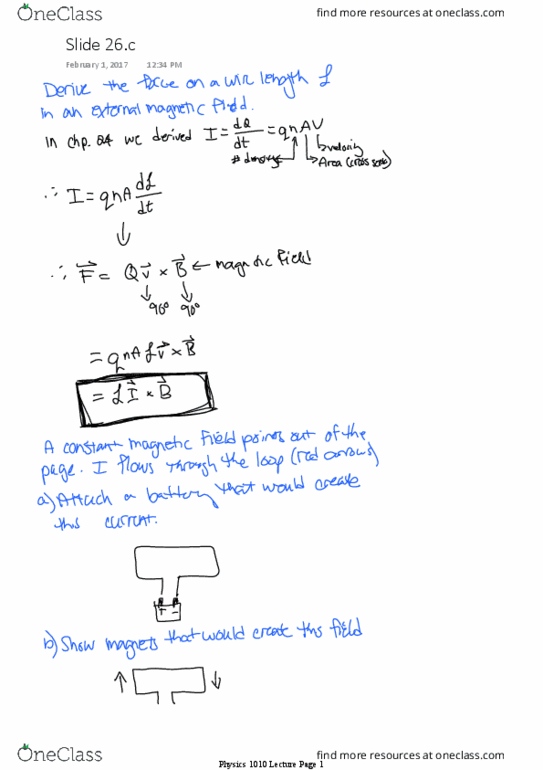 OneClass
find more resources at oneclass.com
Slide 26.c
February 1, 2017 12:34 PM
Derive the force on a wire length ℓ
in an external magnetic field.
In chp. 24 we derived I = dQ/dt = qnAV
# density
velocity
Area (cross
∴ I = qnA dℓ/dt
↓
∴ F⃗ = Qv⃗ × B⃗ ← magnetic field
90° 90°
= qnAℓv⃗ × B⃗
= ℓI⃗ × B⃗
A constant magnetic field points out of the
page. I flows through the loop (red arrows)
a) Attach a battery that would create
this current.
+ −
b) Show magnets that would create this field
↑ ↓
OneClass
find more resources at oneclass.com
Physics 1010 Lecture Page 1